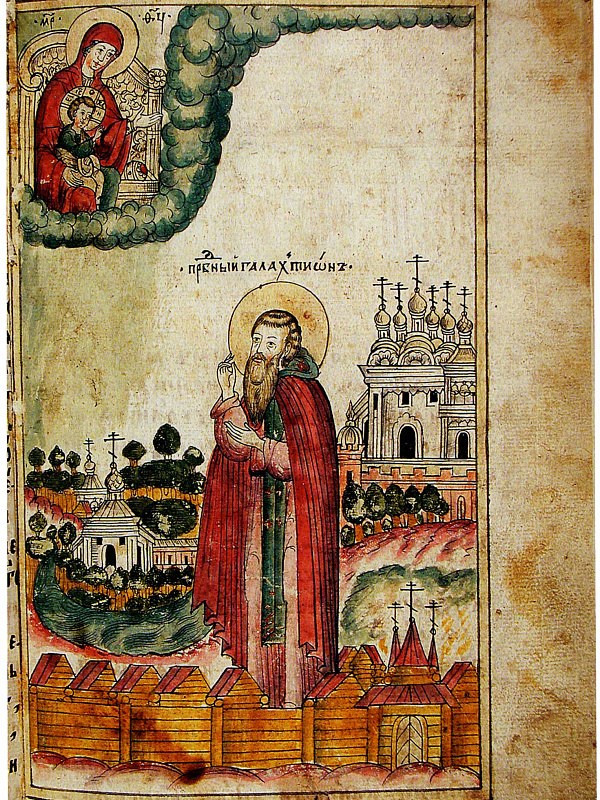 М҃Р Ѳ҃У
·ПРⷣБНЫЙ ГАЛАХТИѠНЪ·